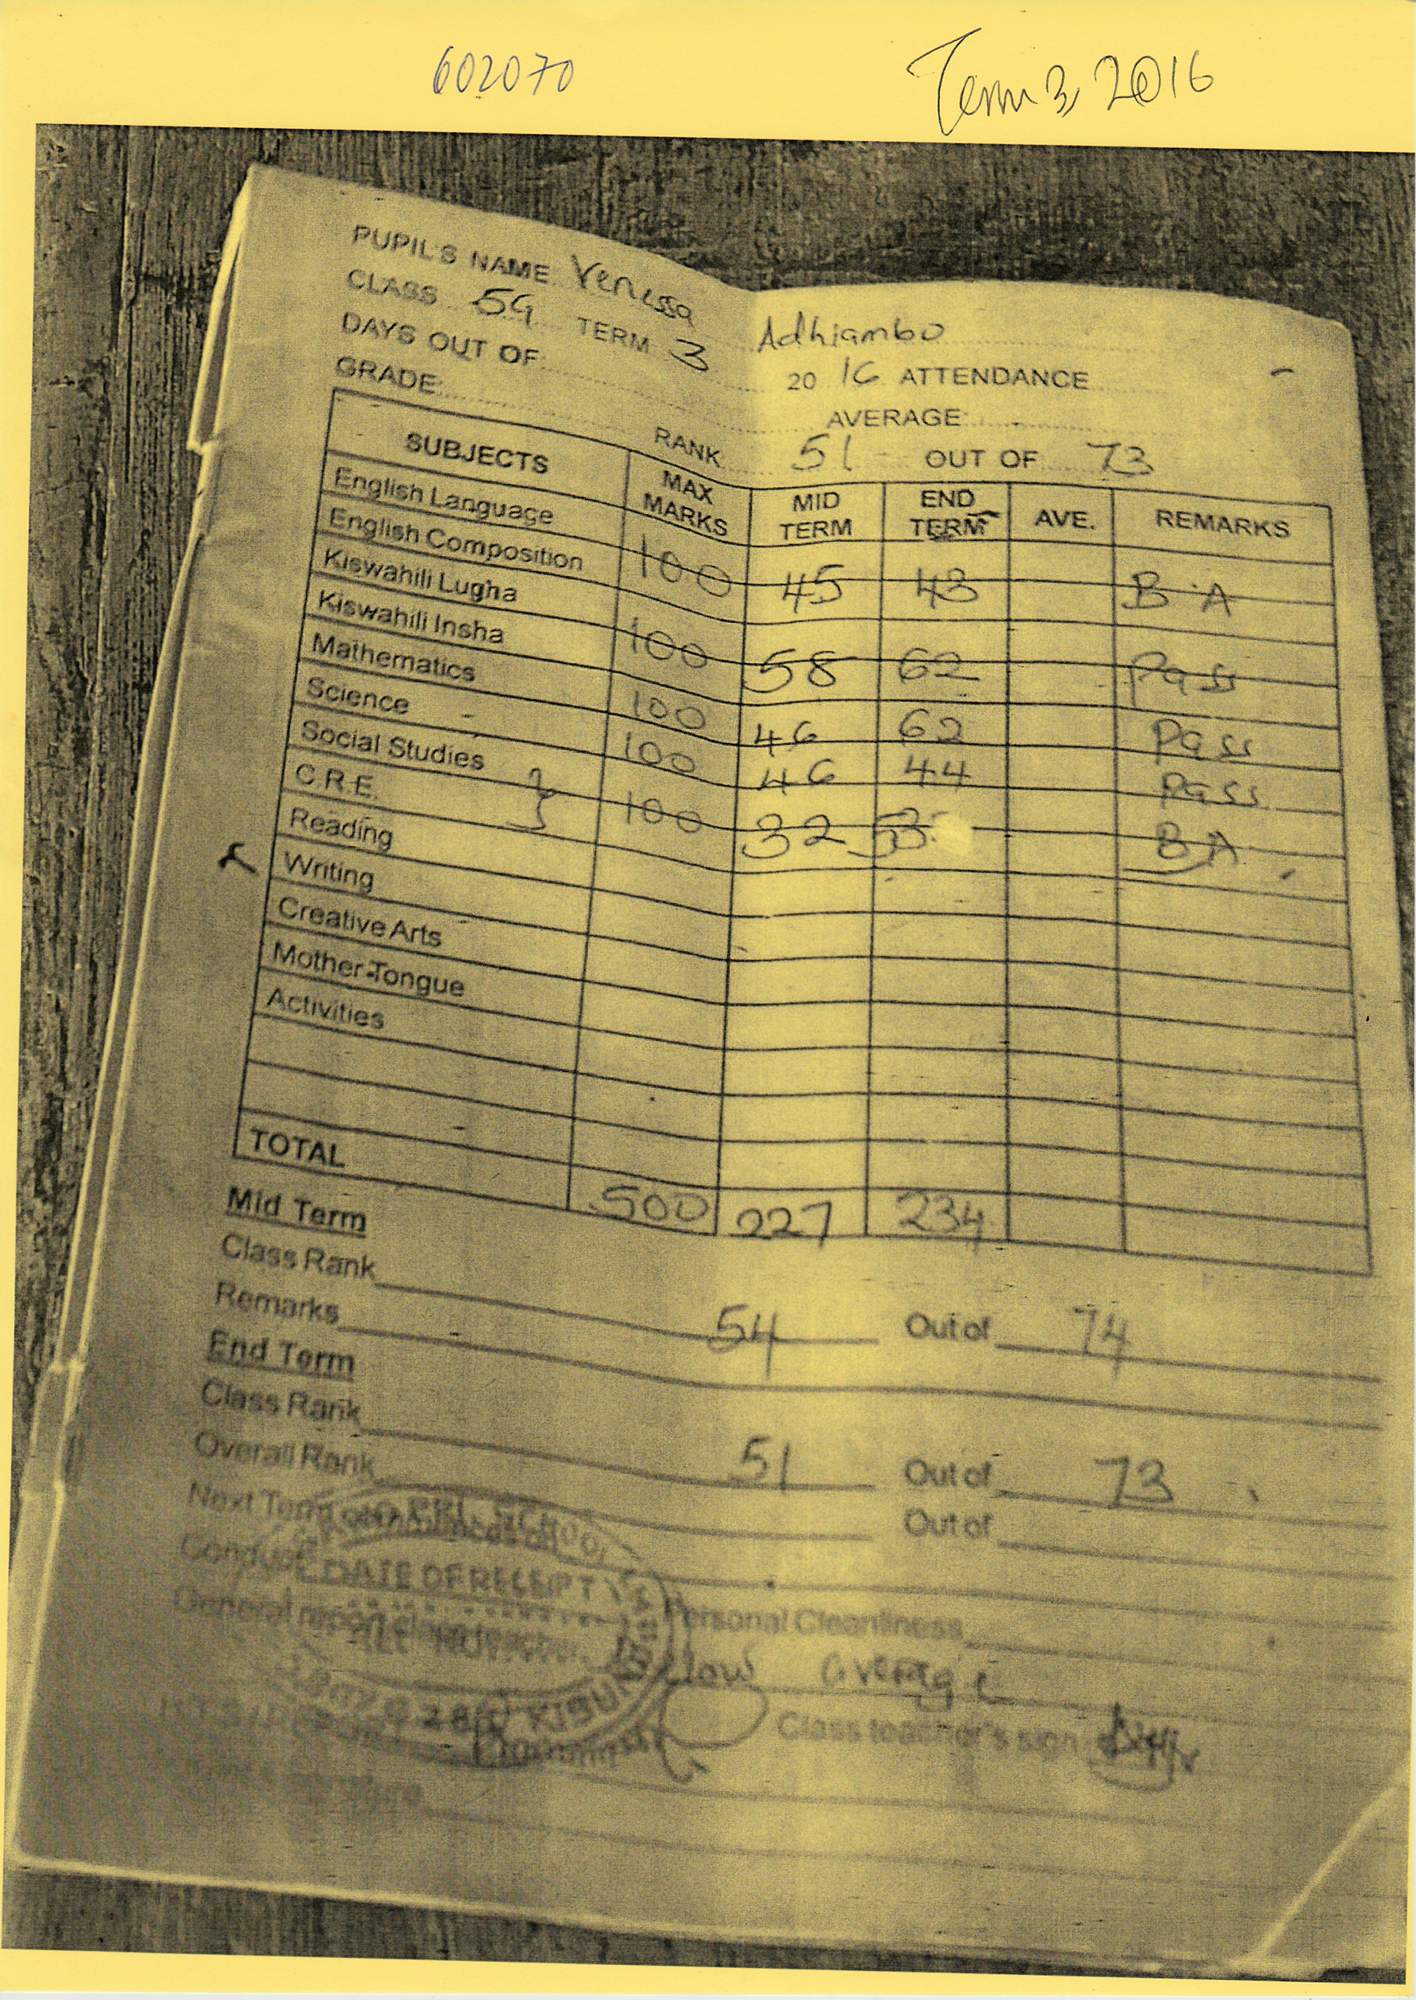 602070
Term 3, 2016
PUPIL'S NAME Venessa Adhiambo
CLASS 5G TERM 3 20 16 ATTENDANCE
DAYS OUT OF AVERAGE:
GRADE: RANK 51 OUT OF 73
SUBJECTS MAX MARKS MID TERM END TERM AVE. REMARKS
English Language
English Composition 100 45 43 B A
Kiswahili Lugha
Kiswahili Insha 100 58 62 Pass
Mathematics 100 46 62 Pass
Science 100 46 44 Pass
Social Studies
C.R.E. 100 32 53 B A
Reading
Writing
Creative Arts
Mother-Tongue
Activities
TOTAL 500 227 234
Mid Term
Class Rank 54 Out of 74
Remarks
End Term
Class Rank 51 Out of 73
Overall Rank Out of
Next Term commences on
Conduct Personal Cleanliness
General report class teacher
low average
Class teacher's sign
PRI. SCHOOL
DATE OF RECEIPT